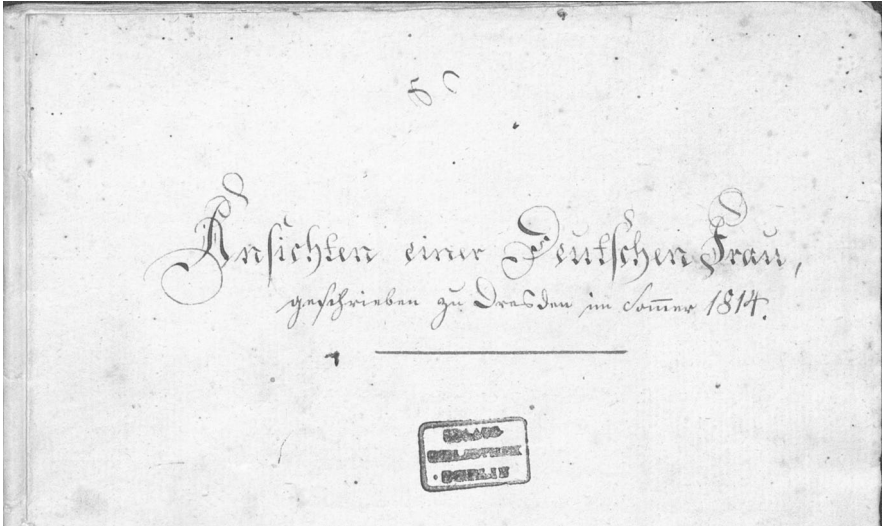 Ansichten einer Deutschen Frau,
geschrieben zu Dresden im Som̅er 1814.
BIBLIOTHEK
BERLIN